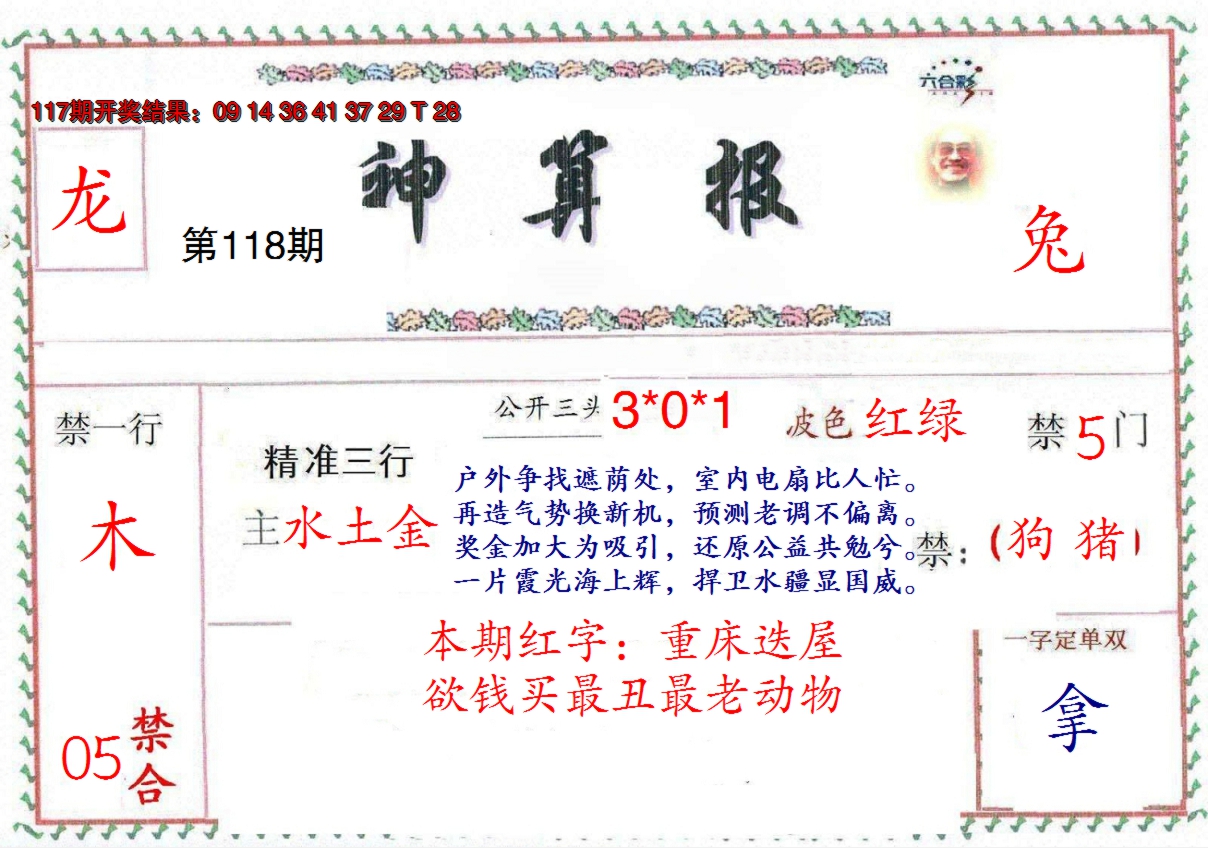 六合彩
117期开奖结果：09 14 36 41 37 29 T 28
神算报
龙
第118期
兔
禁一行
木
05
禁合
公开三头 3*0*1
波色 红绿
禁5门
精准三行
主水土金
户外争找遮荫处，室内电扇比人忙。
再造气势换新机，预测老调不偏离。
奖金加大为吸引，还原公益共勉兮。
一片霞光海上辉，捍卫水疆显国威。
禁：（狗 猪）
本期红字：重床迭屋
欲钱买最丑最老动物
一字定单双
拿